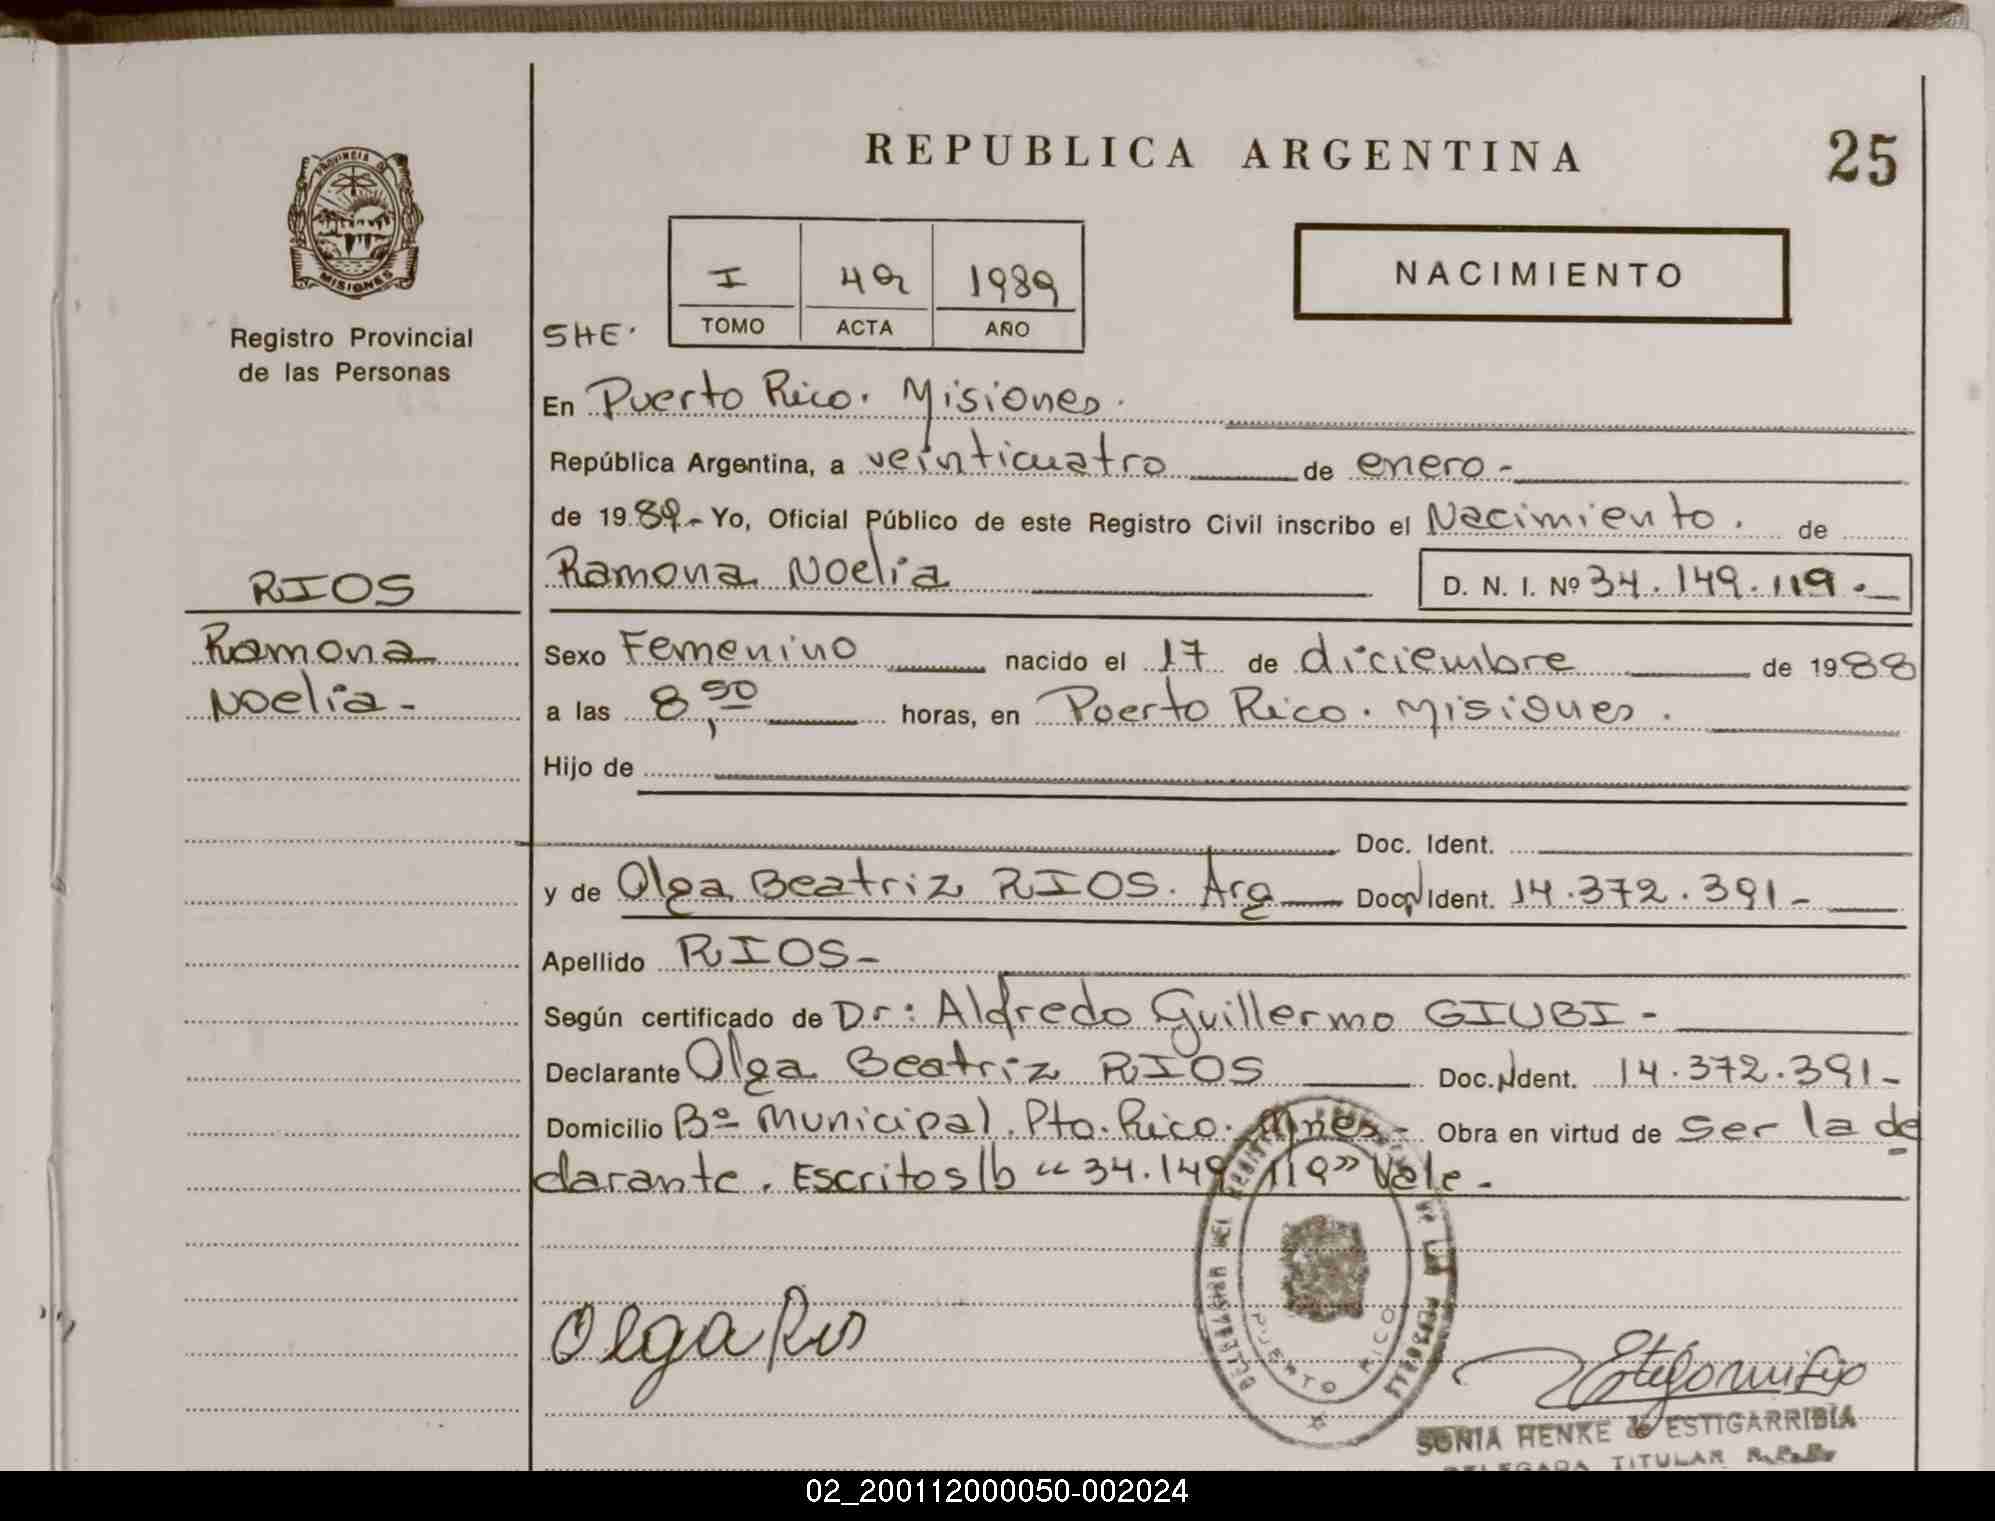 REPUBLICA ARGENTINA
25
PROVINCIA DE
MISIONES
Registro Provincial
de las Personas
I 49 1989
TOMO ACTA AÑO
NACIMIENTO
SHE.
En Puerto Rico. Misiones.
República Argentina, a veinticuatro de enero-
de 1989- Yo, Oficial Público de este Registro Civil inscribo el Nacimiento. de
RIOS
Ramona
Noelia-
Ramona Noelia D. N. I. Nº 34.149.119.-
Sexo Femenino nacido el 17 de diciembre de 1988
a las 8,50 horas, en Puerto Rico. Misiones.
Hijo de
Doc. Ident.
y de Olga Beatriz RIOS. Arg Doc. N Ident. 14.372.391-
Apellido RIOS-
Según certificado de Dr: Alfredo Guillermo GIUBI-
Declarante Olga Beatriz RIOS Doc. N Ident. 14.372.391-
Domicilio Bº Municipal. Pto. Rico. Mnes- Obra en virtud de ser la de
clarante. Escrito s/b "34.149.119" Vale-
PUERTO RICO
Olga Rios
SONIA HENKE de ESTIGARRIBIA
DELEGADA TITULAR R.P.P.
02_200112000050-002024